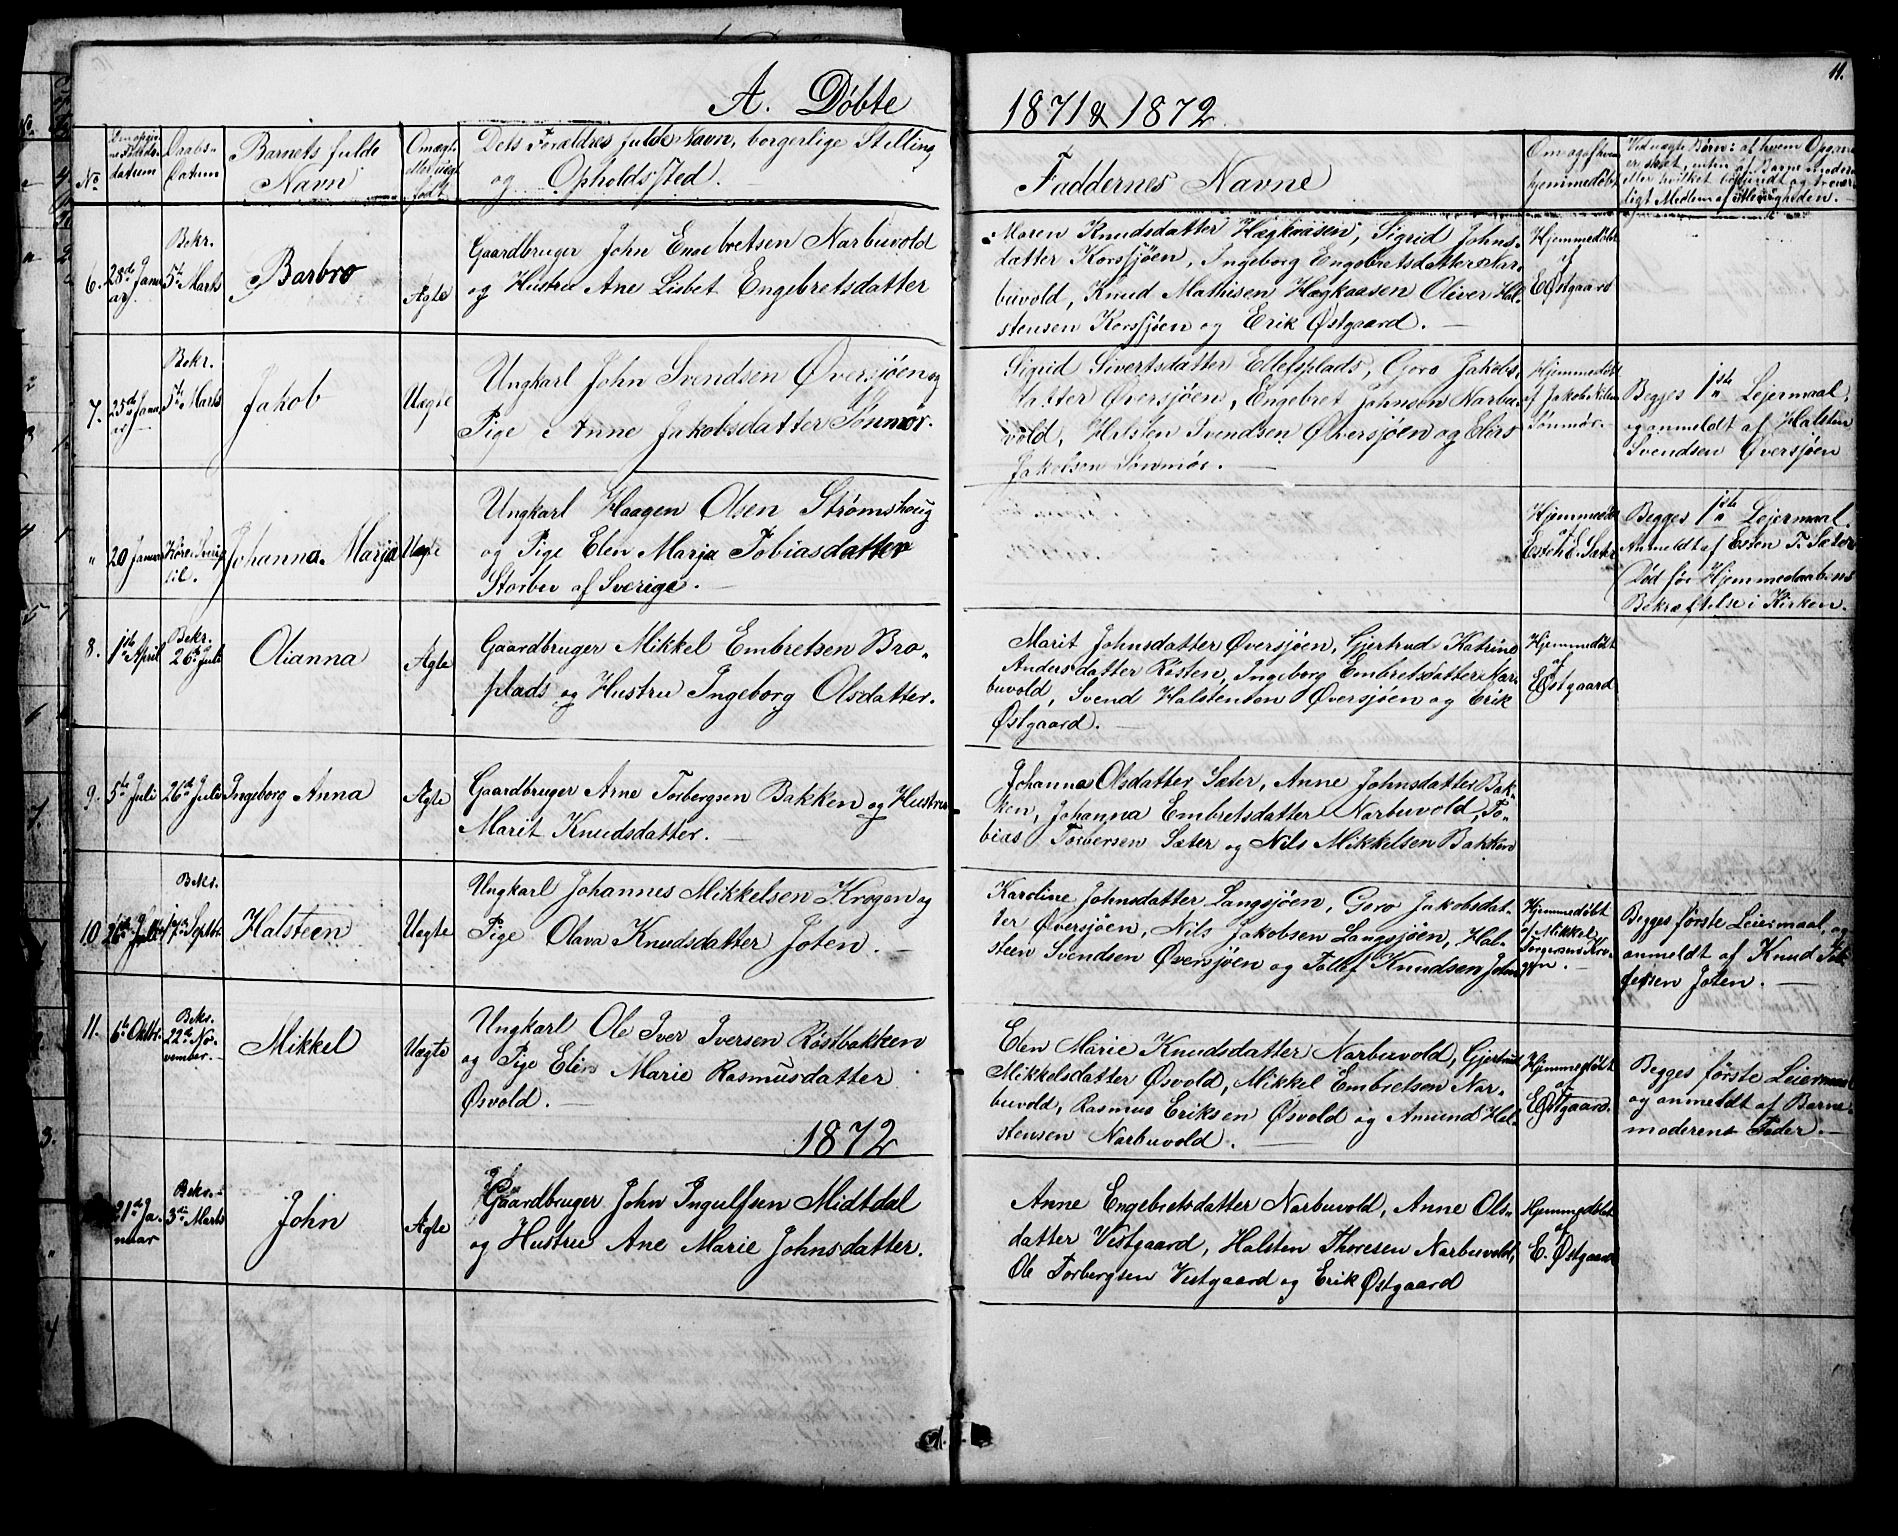 11.
A. Døbte
1871 & 1872
No
Daabs-
Datum
Barnets fulde
Navn
Dets Forældres fulde Navn, borgerlige Stilling
og Opholdssted.
Faddernes Navne
Om og af hvem
hjemmedøbt
6.
28de Janu
ar
Bekr.
5te Marts
Barbro
Ægte
Gaardbruger John Engebretsen Narbuvold
og Hustru Ane Lisbet Engebretsdatter
Maren Knudsdatter Hægkaasen, Sigrid Johns-
datter Korssjøen, Ingeborg Engebretsdatter Nar-
buvold, Knud Mathisen Hægkaasen Oliver Hal-
stensen Korssjøen og Erik Østgaard.
Hjemmedøbt
af
E Østgaard
7.
25de Janu
ar
Bekr.
5te Marts
Jakob
Uægte
Ungkarl John Svendsen Øversjøen og
Pige Anne Jakobsdatter Sønmør.
Sigrid Sivertsdatter Ellefsplads, Goro Jakobs-
datter Øversjøen, Engebret Johnsen Narbu-
vold, Halsten Svendsen Øversjøen og
Jakobsen Sønmør.
Hjemmedøbt
af Jakob Nilsen
Sønmør.
Begges 1ste Lejermaal,
og anmeldt af Halsten
Svendsen Øversjøen
"
20 Januar
Johanna Marja
Uægte
Ungkarl Haagen Olsen Strømshaug
og Pige Elen Marja Tobiasdatter
Storbu af Sverige.
Hjemmedøbt
af
Esten E. Sæter
Begges 1ste Lejermaal.
Anmeldt af Esten T. Sæter
Død før Hjemmedaabens
Bekræftelse i Kirken.
8.
1ste April
Bekr.
26de Juli
Olianna
Ægte
Gaardbruger Mikkel Embretsen Bro-
plads og Hustru Ingeborg Olsdatter.
Marit Johnsdatter Øversjøen, Gjertrud Katrine
Andersdatter Røsten, Ingeborg Embretsdatter Nar-
buvold, Svend Halstensen Øversjøen og Erik
Østgaard.
Hjemmedøbt
af
E Østgaard
9.
5te Juli
26de Juli
Ingeborg Anna
Ægte
Gaardbruger Arne Torbergsen Bakken og Hustru
Marit Knudsdatter.
Johanna Olsdatter Sæter, Anne Johnsdatter Bak-
ken, Johanna Embretsdatter Narbuvold, To-
bias Torbersen Sæter og Nils Mikkelsen Bakken
10
26de Juli
Bekr.
17de Septbr
Halsteen
Uægte
Ungkarl Johannes Mikkelsen Krogen og
Pige Olava Knudsdatter Joten.
Karoline Johnsdatter Langsjøen, Goro Jakobsdat-
ter Øversjøen, Nils Jakobsen Langsjøen, Hal-
steen Svendsen Øversjøen og Tollef Knudsen Joten
Hjemmedøbt
af Mikkel
Torgersens Kro-
gen.
Begges første Leiermaal, og
anmeldt af Knud Tol-
lefsen Joten.
11.
6te Oktbr.
Bekr.
22de No-
vember.
Mikkel
Uægte
Ungkarl Ole Iver Iversen Røstbakken
og Pige Elen Marie Rasmusdatter
Øsvold.
Elen Marie Knudsdatter Narbuvold, Gjertrud
Mikkelsdatter Øsvold, Mikkel Embretsen Nar-
buvold, Rasmus Eriksen Øsvold og Amund Hal-
stensen Narbuvold.
Hjemmedøbt
af
E Østgaard.
Begges første Leiermaal
og anmeldt af Barne-
moderens Fader.
1872
21de Ja-
nuar
Bekr.
3die Marts
John
Ægte
Gaardbruger John Ingulfsen Midtdal
og Hustru Ane Marie Johnsdatter.
Anne Engebretsdatter Narbuvold, Anne Ols-
datter Vestgaard, Halsten Thoresen Narbuvold,
Ole Torbergsen Vestgaard og Erik Østgaard
Hjemmedøbt
af
E. Østgaard